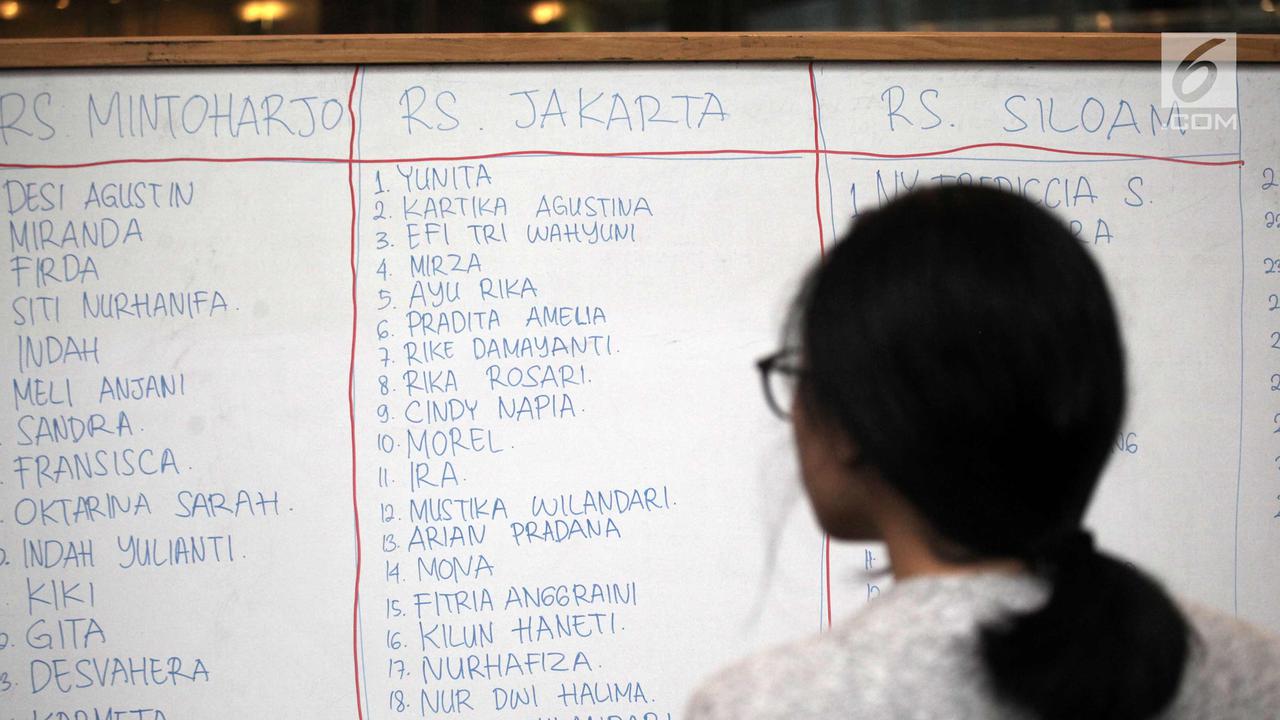 RS. MINTOHARJO
DESI AGUSTIN
MIRANDA
FIRDA
SITI NURHANIFA.
INDAH
MELI ANJANI
SANDRA.
FRANSISCA.
OKTARINA SARAH.
INDAH YULIANTI.
KIKI
GITA
DESVAHERA
RS. JAKARTA
1. YUNITA
2. KARTIKA AGUSTINA
3. EFI TRI WAHYUNI
4. MIRZA
5. AYU RIKA
6. PRADITA AMELIA
7. RIKE DAMAYANTI.
8. RIKA ROSARI.
9. CINDY NAPIA.
10. MOREL.
11. IRA.
12. MUSTIKA WILANDARI.
13. ARIAN PRADANA
14. MONA
15. FITRIA ANGGRAINI
16. KILUN HANETI.
17. NURHAFIZA.
18. NUR DWI HALIMA.
RS. SILOAM
1. NY. S.
11.
12.
6
.COM